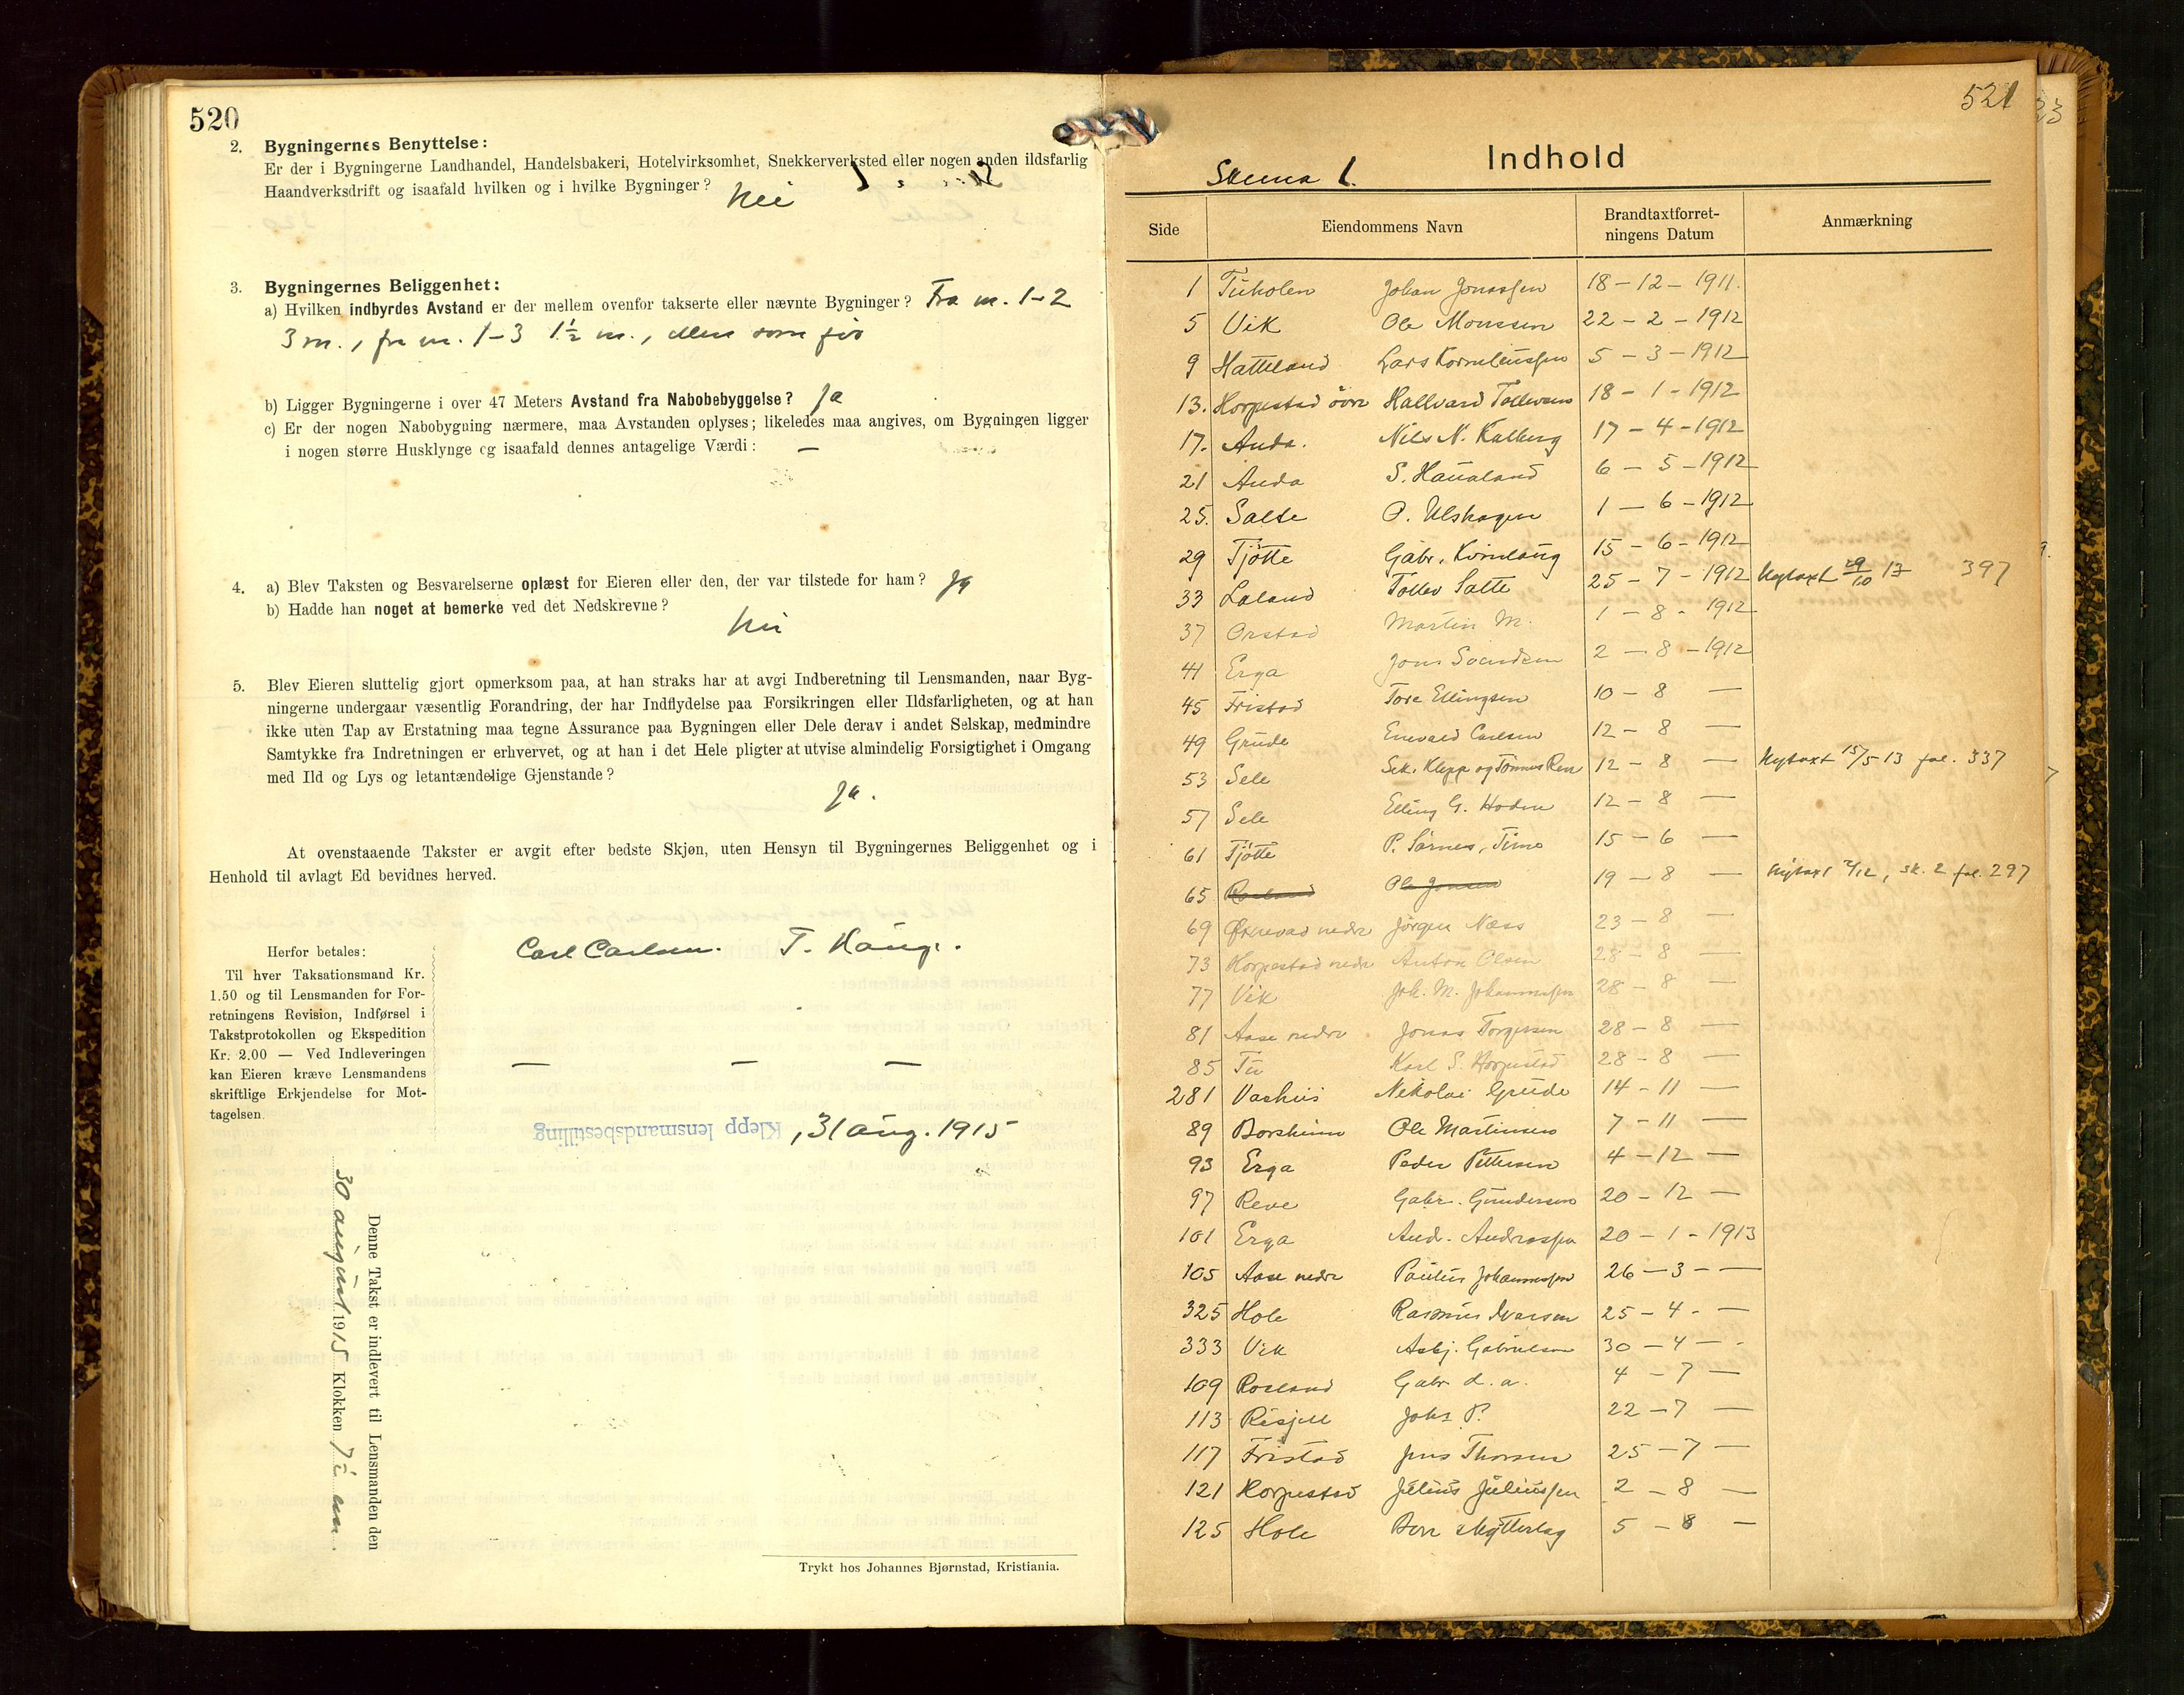 520
2. Bygningernes Benyttelse:
Er der i Bygningerne Landhandel, Handelsbakeri, Hotelvirksomhet, Snekkerverksted eller nogen anden ildsfarlig
Haandverksdrift og isaafald hvilken og i hvilke Bygninger? Nei
3. Bygningernes Beliggenhet:
a) Hvilken indbyrdes Avstand er der mellem ovenfor takserte eller nævnte Bygninger? Fra m. 1-2
3 m., fra m. 1-3 1½ m., ellers som før
b) Ligger Bygningerne i over 47 Meters Avstand fra Nabobebyggelse? Ja
c) Er der nogen Nabobygning nærmere, maa Avstanden oplyses; likeledes maa angives, om Bygningen ligger
i nogen større Husklynge og isaafald dennes antagelige Værdi: —
4. a) Blev Taksten og Besvarelserne oplæst for Eieren eller den, der var tilstede for ham? Ja
b) Hadde han noget at bemerke ved det Nedskrevne?
Nei
5. Blev Eieren sluttelig gjort opmerksom paa, at han straks har at avgi Indberetning til Lensmanden, naar Byg-
ningerne undergaar væsentlig Forandring, der har Indflydelse paa Forsikringen eller Ildsfarligheten, og at han
ikke uten Tap av Erstatning maa tegne Assurance paa Bygningen eller Dele derav i andet Selskap, medmindre
Samtykke fra Indretningen er erhvervet, og at han i det Hele pligter at utvise almindelig Forsigtighet i Omgang
med Ild og Lys og letantændelige Gjenstande?
Ja.
At ovenstaaende Takster er avgit efter bedste Skjøn, uten Hensyn til Bygningernes Beliggenhet og i
Henhold til avlagt Ed bevidnes herved.
Carl Carlsen. T. Haug.
Herfor betales:
Til hver Taksationsmand Kr.
1.50 og til Lensmanden for For-
retningens Revision, Indførsel i
Takstprotokollen og Ekspedition
Kr. 2.00 — Ved Indleveringen
kan Eieren kræve Lensmandens
skriftlige Erkjendelse for Mot-
tagelsen.
— — —
Klepp lensmandsbestilling, 31 aug. 1915
Denne Takst er indlevert til Lensmanden den
30 august 1915 Klokken 7 em.
Trykt hos Johannes Bjørnstad, Kristiania.
521
Indhold
Skema 1.
Side Eiendommens Navn Brandtaxtforret-
ningens Datum Anmærkning
1 Tuholen Johan Jonassen 18 - 12 - 1911.
5 Vik Ole Monssen 22 - 2 - 1912
9 Hatteland Lars Korneliussen 5 - 3 - 1912
13. Horpestad øvre Hallvard Tollevsen 18 - 1 - 1912
17. Anda. Nils N. Kalberg 17 - 4 - 1912
21 Anda S. Haualand 6 - 5 - 1912
25. Salte O. Ulshagen 1 - 6 - 1912
29 Tjötte Gabr. Kvinlaug 15 - 6 - 1912
33 Laland Tollev Salte 25 - 7 - 1912 Nytaxt 29/10 13 397
37 Orstad Martin M. 1 - 8 - 1912
41 Erga Jons Svendsen 2 - 8 - 1912
45 Fristad Tore Ellingsen 10 - 8 —
49 Grude Enevald Carlsen 12 - 8 —
53 Sele Sek. Klepp og Tønnes Reve 12 - 8 — Nytaxt 15/5-13 fol. 337
57 Sele Elling G. Hodne 12 - 8 —
61 Tjötte P. Sørnes, Time 15 - 6 —
65 Roeland Ole Jonsen 19 - 8 — Nytaxt 2/12, sk. 2 fol. 297
69 Øxnevad nedre Jørgen Næss 23 - 8 —
73 Horpestad nedre Anton Olsen 28 - 8 —
77 Vik Joh. M. Johannessen 28 - 8 —
81 Aase nedre Jonas Torgersen 28 - 8 —
85 Tu Karl S. Horpestad 28 - 8 —
281 Vashus Nikolai Grude 14 - 11 —
89 Borsheim Ole Martinsen 7 - 11 —
93 Erga Peder Pettersen 4 - 12 —
97 Reve Gabr. Gundersen 20 - 12 —
101 Erga Andr. Andreassen 20 - 1 - 1913
105 Aase nedre Paulus Johannessen 26 - 3 - —
325 Hole Rasmus Ivarsen 25 - 4 - —
333 Vik Asbj. Gabrielsen 30 - 4 —
109 Roeland Gabr. L. a. 4 - 7 —
113 Risjell Johs P. 22 - 7 —
117 Fristad Jens Thorsen 25 - 7 —
121 Horpestad Julius Juliussen 2 - 8 —
125 Hole Bore skytterlag 5 - 8 —